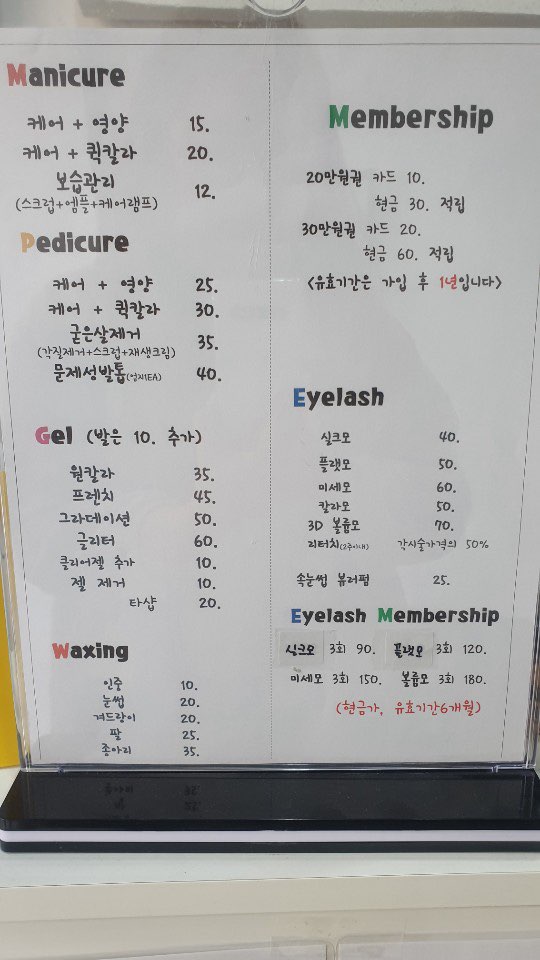 Manicure
케어 + 영양 15.
케어 + 퀵칼라 20.
보습관리 12.
(스크럽+엠플+케어램프)
Pedicure
케어 + 영양 25.
케어 + 퀵칼라 30.
굳은살제거 35.
(각질제거+스크럽+재생크림)
문제성발톱(엄지1EA) 40.
Gel (발은 10. 추가)
원칼라 35.
프렌치 45.
그라데이션 50.
글리터 60.
클리어젤 추가 10.
젤 제거 10.
타샵 20.
Waxing
인중 10.
눈썹 20.
겨드랑이 20.
팔 25.
종아리 35.
Membership
20만원권 카드 10.
현금 30. 적립
30만원권 카드 20.
현금 60. 적립
<유효기간은 가입 후 1년입니다>
Eyelash
싱크모 40.
플랫모 50.
미세모 60.
칼라모 50.
3D 볼륨모 70.
리터치(2주이내) 각시술가격의 50%
속눈썹 뷰러펌 25.
Eyelash Membership
싱크모 3회 90. 플랫모 3회 120.
미세모 3회 150. 볼륨모 3회 180.
(현금가, 유효기간6개월)